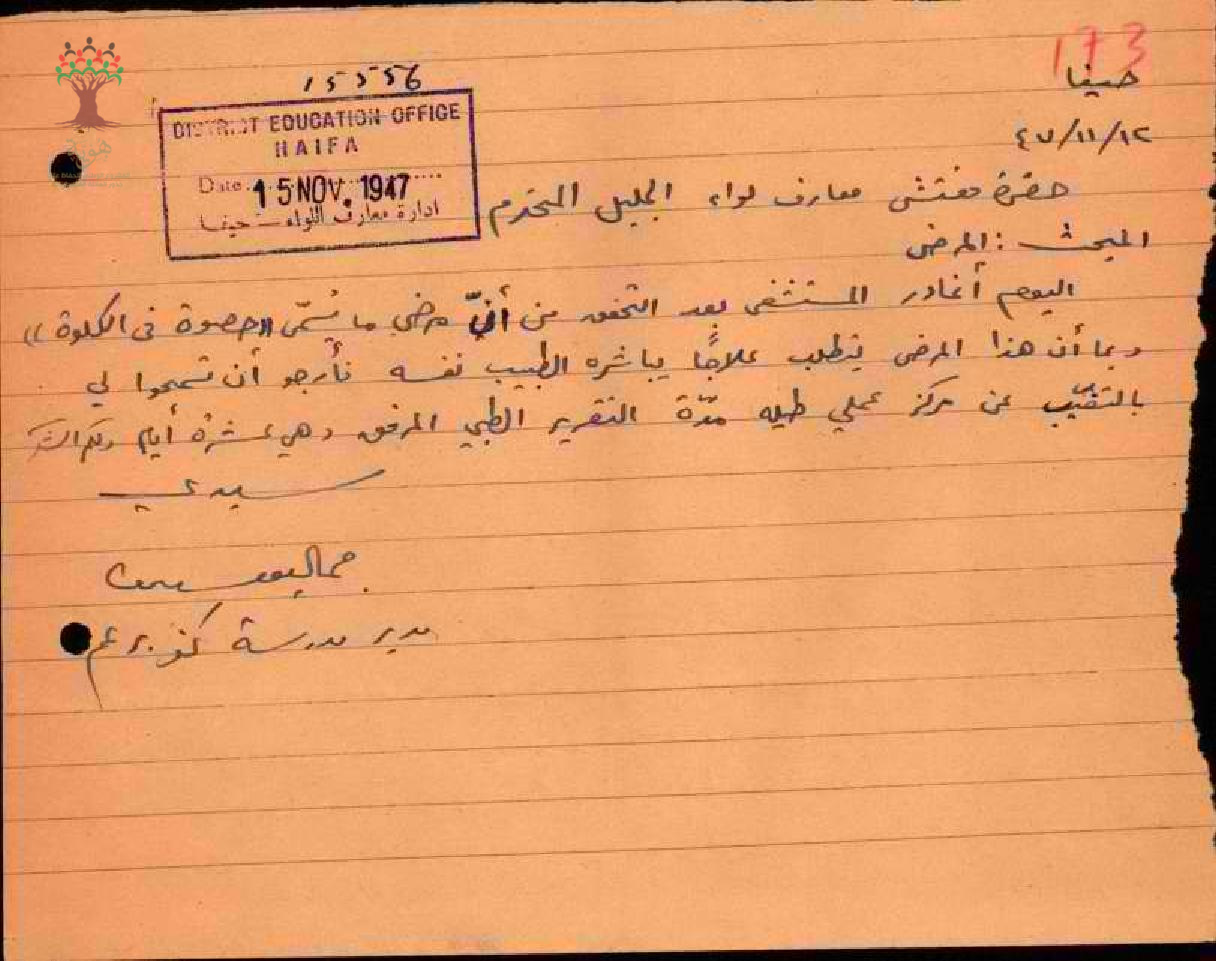 173
حيفا
٤٧/١١/١٢
15556
DISTRICT EDUCATION OFFICE
HAIFA
Date 15 NOV. 1947
ادارة معارف اللواء – حيفا
حضرة مفتش معارف لواء الجليل المحترم
المبحث : المرض
اليوم أغادر المستشفى بعد التحقق من أنّ مرضي ما يُسمّى «حصوة في الكلوة»
وبما أن هذا المرض يتطلب علاجًا يباشره الطبيب نفسه فأرجو أن تسمحوا لي
بالتغيّب عن مركز عملي طيلة مدّة التقرير الطبي المرفق وهي عشرة أيام ولكم الشكر
سيدي
مدير مدرسة كفر برعم
هوية